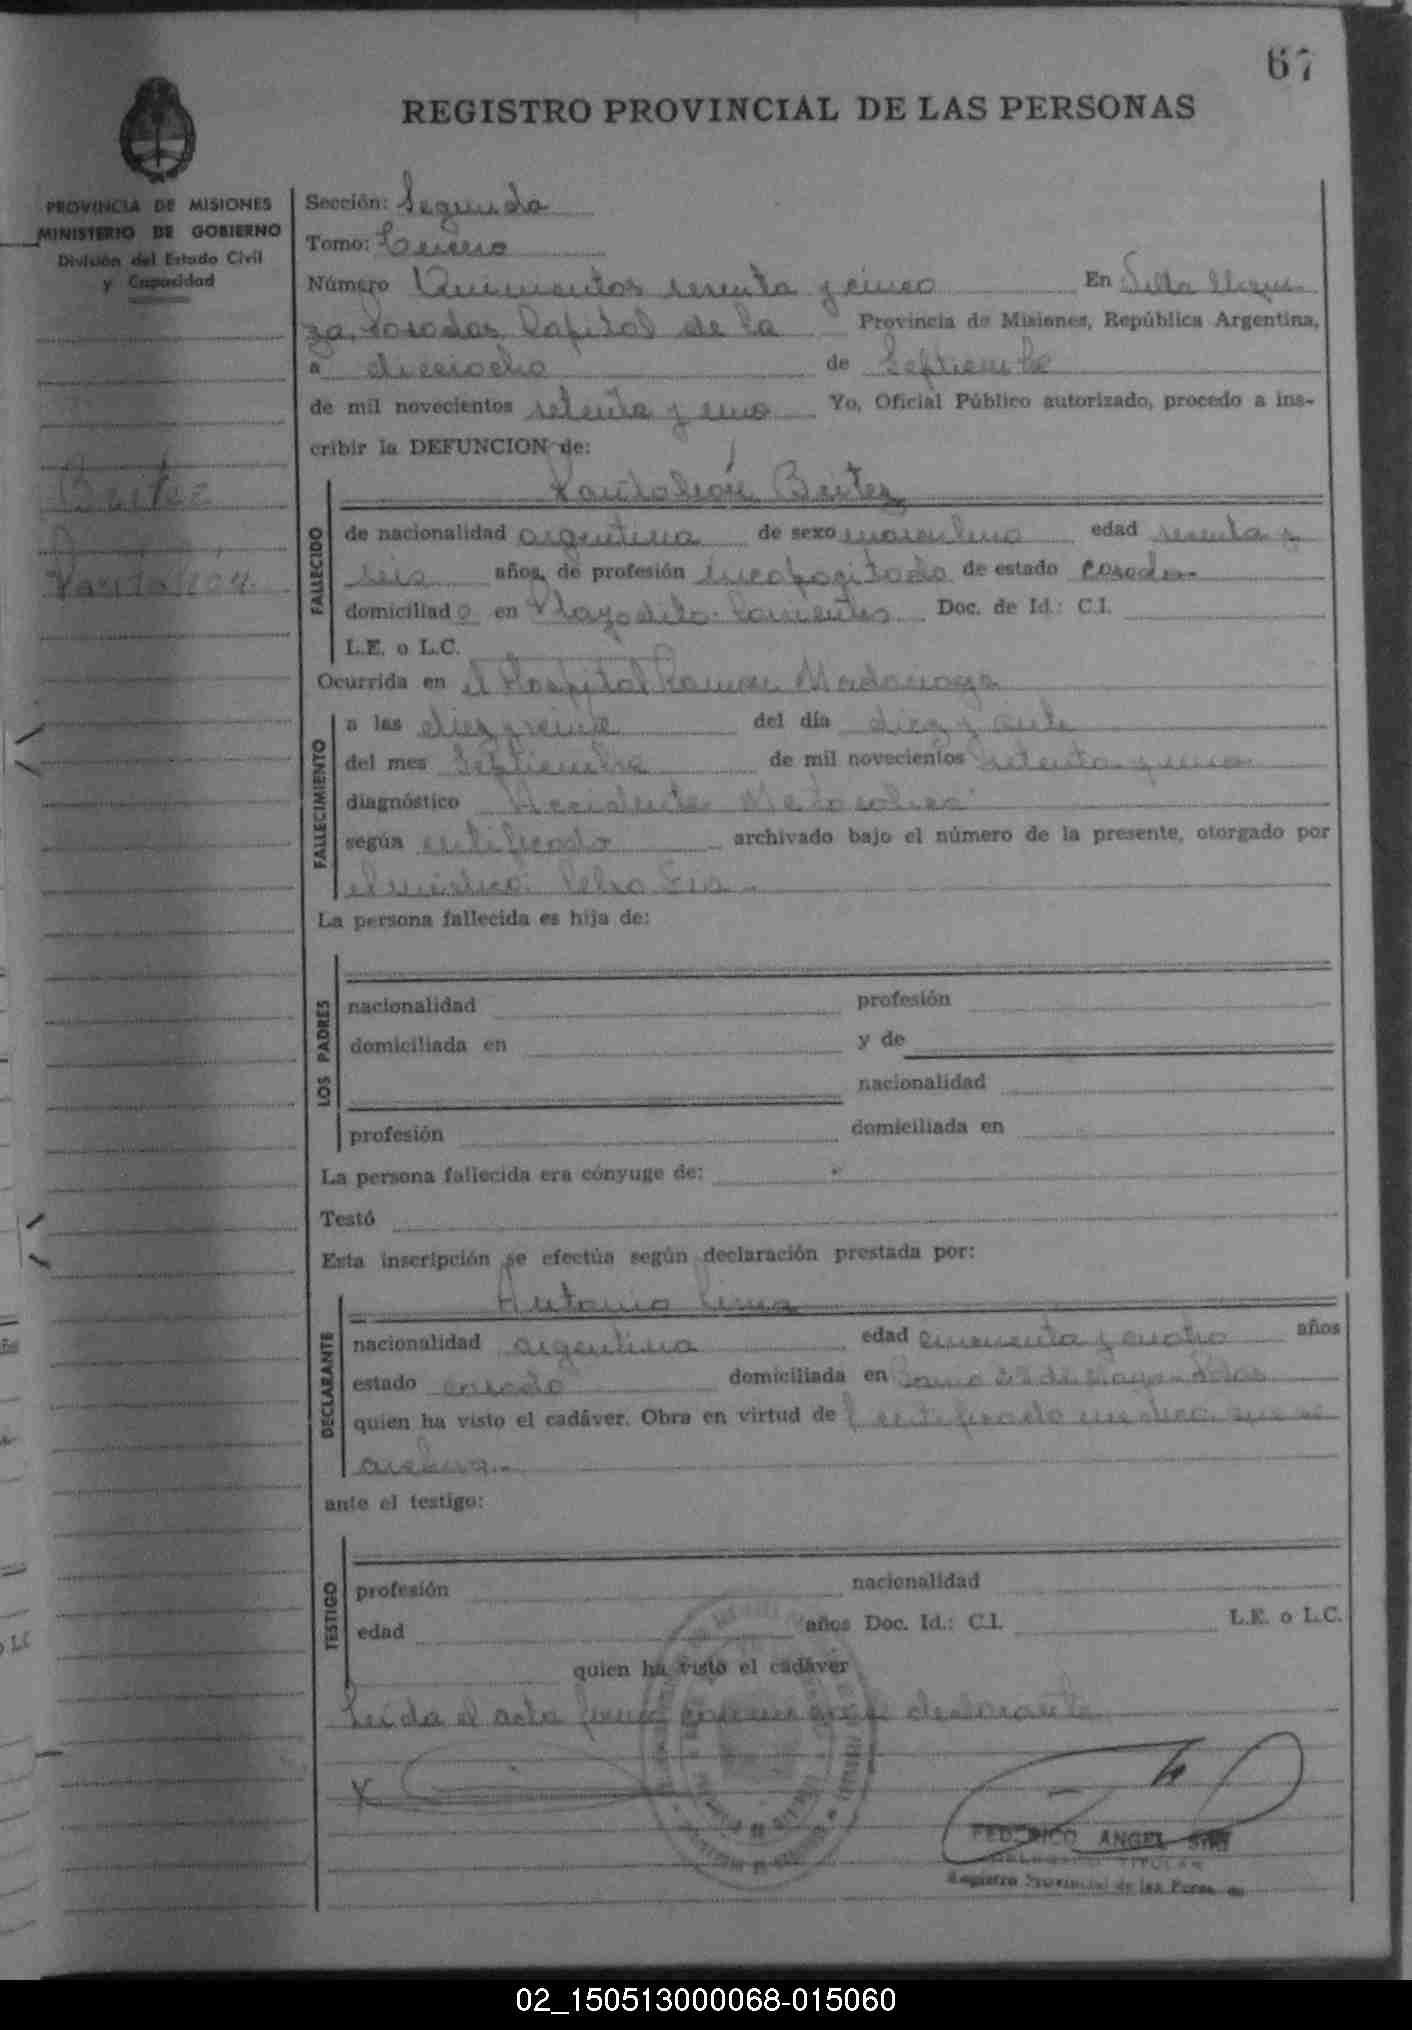 67
REGISTRO PROVINCIAL DE LAS PERSONAS
PROVINCIA DE MISIONES
MINISTERIO DE GOBIERNO
División del Estado Civil
y Capacidad
Britez
Pantaleón
Sección: Segunda
Tomo: Tercero
Número Quinientos sesenta y cinco En Villa
Posadas, Capital de la Provincia de Misiones, República Argentina,
a dieciocho de Septiembre
de mil novecientos setenta y uno Yo, Oficial Público autorizado, procedo a ins-
cribir la DEFUNCION de:
Pantaleón Britez
FALLECIDO
de nacionalidad argentina de sexo masculino edad sesenta y
seis años, de profesión incapacitado de estado casado
domiciliado en Playadito Corrientes Doc. de Id.: C.I.
L.E. o L.C.
Ocurrida en el Hospital Ramón Madariaga
FALLECIMIENTO
a las diez y veinte del día diez y siete
del mes Septiembre de mil novecientos setenta y uno
diagnóstico Accidente
según certificado archivado bajo el número de la presente, otorgado por
el médico
La persona fallecida es hija de:
LOS PADRES
nacionalidad profesión
domiciliada en y de
nacionalidad
profesión domiciliada en
La persona fallecida era cónyuge de:
Testó
Esta inscripción se efectúa según declaración prestada por:
Antonio
DECLARANTE
nacionalidad argentina edad cincuenta y cuatro años
estado casado domiciliada en de Mayo - Pdas
quien ha visto el cadáver. Obra en virtud del certificado médico que se
archiva.-
ante el testigo:
TESTIGO
profesión nacionalidad
edad años Doc. Id.: C.I. L.E. o L.C.
quien ha visto el cadáver
Leída el acta firma el declarante
X
FEDERICO ANGEL
TITULAR
Registro Provincial de las Personas
02_150513000068-015060